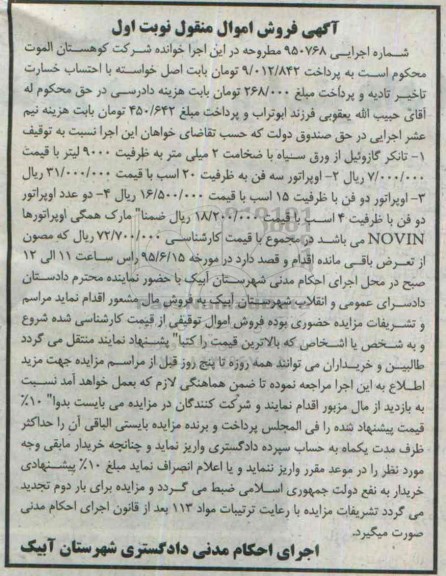 آگهی فروش اموال منقول نوبت اول
شماره اجرایی ۹۵۰۷۶۸ مطروحه در این اجرا خوانده شرکت کوهستان الموت
محکوم است به پرداخت ۹/۰۱۲/۸۴۲ تومان بابت اصل خواسته با احتساب خسارت
تاخیر تادیه و پرداخت مبلغ ۲۶۸/۰۰۰ تومان بابت هزینه دادرسی در حق محکوم له
آقای حبیب الله یعقوبی فرزند ابوتراب و پرداخت مبلغ ۴۵۰/۶۴۲ تومان بابت هزینه نیم
عشر اجرایی در حق صندوق دولت که حسب تقاضای خواهان این اجرا نسبت به توقیف
۱- تانکر گازوئیل از ورق سیاه با ضخامت ۲ میلی متر به ظرفیت ۹۰۰۰ لیتر با قیمت
۷/۰۰۰/۰۰۰ ریال ۲- اوپراتور سه فن به ظرفیت ۲۰ اسب با قیمت ۳۱/۰۰۰/۰۰۰ ریال
۳- اوپراتور دو فن با ظرفیت ۱۵ اسب با قیمت ۱۶/۵۰۰/۰۰۰ ریال ۴- دو عدد اوپراتور
دو فن با ظرفیت ۴ اسب با قیمت ۱۸/۲۰۰/۰۰۰ ریال ضمنا" مارک همگی اوپراتورها
NOVIN می باشد در مجموع با قیمت کارشناسی ۷۲/۷۰۰/۰۰۰ ریال که مصون
از تعرض باقی مانده اقدام و قصد دارد در مورخه ۹۵/۶/۱۵ راس ساعت ۱۱ الی ۱۲
صبح در محل اجرای احکام مدنی شهرستان آبیک با حضور نماینده محترم دادستان
دادسرای عمومی و انقلاب شهرستان آبیک به فروش مال مشعور اقدام نماید مراسم
و تشریفات مزایده حضوری بوده فروش اموال توقیفی از قیمت کارشناسی شده شروع
و به شخص یا اشخاص که بالاترین قیمت را کتبا" پیشنهاد نمایند منتقل می گردد
طالبین و خریداران می توانند همه روزه تا پنج روز قبل از مراسم مزایده جهت مزید
اطلاع به این اجرا مراجعه نموده تا ضمن هماهنگی لازم که بعمل خواهد آمد نسبت
به بازدید از مال مزبور اقدام نمایند و شرکت کنندگان در مزایده می بایست بدوا" ۱۰٪
قیمت پیشنهاد شده را فی المجلس پرداخت و برنده مزایده بایستی الباقی آن را حداکثر
ظرف مدت یکماه به حساب سپرده دادگستری واریز نماید و چنانچه خریدار مابقی وجه
مورد نظر را در موعد مقرر واریز ننماید و یا اعلام انصراف نماید مبلغ ۱۰٪ پیشنهادی
خریدار به نفع دولت جمهوری اسلامی ضبط می گردد و مزایده برای بار دوم تجدید
می گردد تشریفات مزایده با رعایت ترتیبات مواد ۱۱۳ بعد از قانون اجرای احکام مدنی
صورت میگیرد.
اجرای احکام مدنی دادگستری شهرستان آبیک